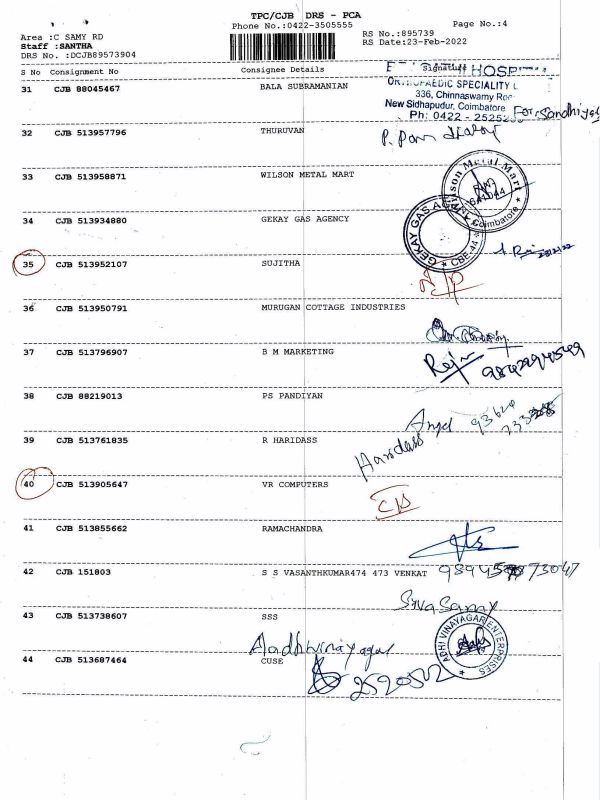 TPC/CJB DRS - PCA
Phone No.:0422-3505555
Page No.:4
Area :C SAMY RD
RS No.:895739
Staff :SANTHA
RS Date:23-Feb-2022
DRS No. :DCJB89573904
S No Consignment No Consignee Details Signature
HOSP
31 CJB 88045467 BALA SUBRAMANIAN
ORTHOPAEDIC SPECIALITY
336, Chinnaswamy Roa
New Sidhapudur, Coimbatore
Ph: 0422 - 2525
For Sandhiya
32 CJB 513957796 THURUVAN
33 CJB 513958871 WILSON METAL MART
Wilson Metal Mart
Coimbatore
34 CJB 513934880 GEKAY GAS AGENCY
GEKAY GAS
CBE-44
35 CJB 513952107 SUJITHA
36 CJB 513950791 MURUGAN COTTAGE INDUSTRIES
37 CJB 513796907 B M MARKETING
38 CJB 88219013 PS PANDIYAN
Angel 93620
39 CJB 513761835 R HARIDASS
Haridass
40 CJB 513905647 VR COMPUTERS
41 CJB 513855662 RAMACHANDRA
42 CJB 151803 S S VASANTHKUMAR474 473 VENKAT
Sivasamy
43 CJB 513738607 SSS
Aadhivinayagar
ADHI VINAYAGAR ENTERPRISES
44 CJB 513687464 CUSE
2590502